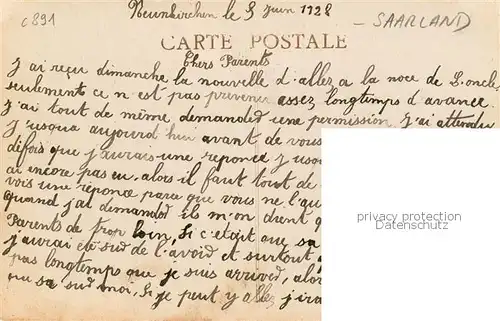 c891
Neunkirchen le 3 Juin 1928
- SAARLAND
CARTE POSTALE
Chers Parents
J'ai reçu dimanche la nouvelle d'allez a la noce de L'oncle
seulement ce n est pas prevenir assez longtemps d avance.
J'ai tout de même demander une permission J'ai attendu
Jusqua aujourd hui avant de vous
défois que j'aurais une reponce J usqu
ai encore pas eu. alors il faut tout de
vois une réponce parce que vous ne l'au
quand j'ai demandot ils m'on dient q
Parents de trop loin, Si c'était que sa
j'aurai été sud de l'avoid et surtout
pas longtemps que je suis arrived, alor
que sa sud moi, Si je peut y allez j'ira
privacy protection
Datenschutz